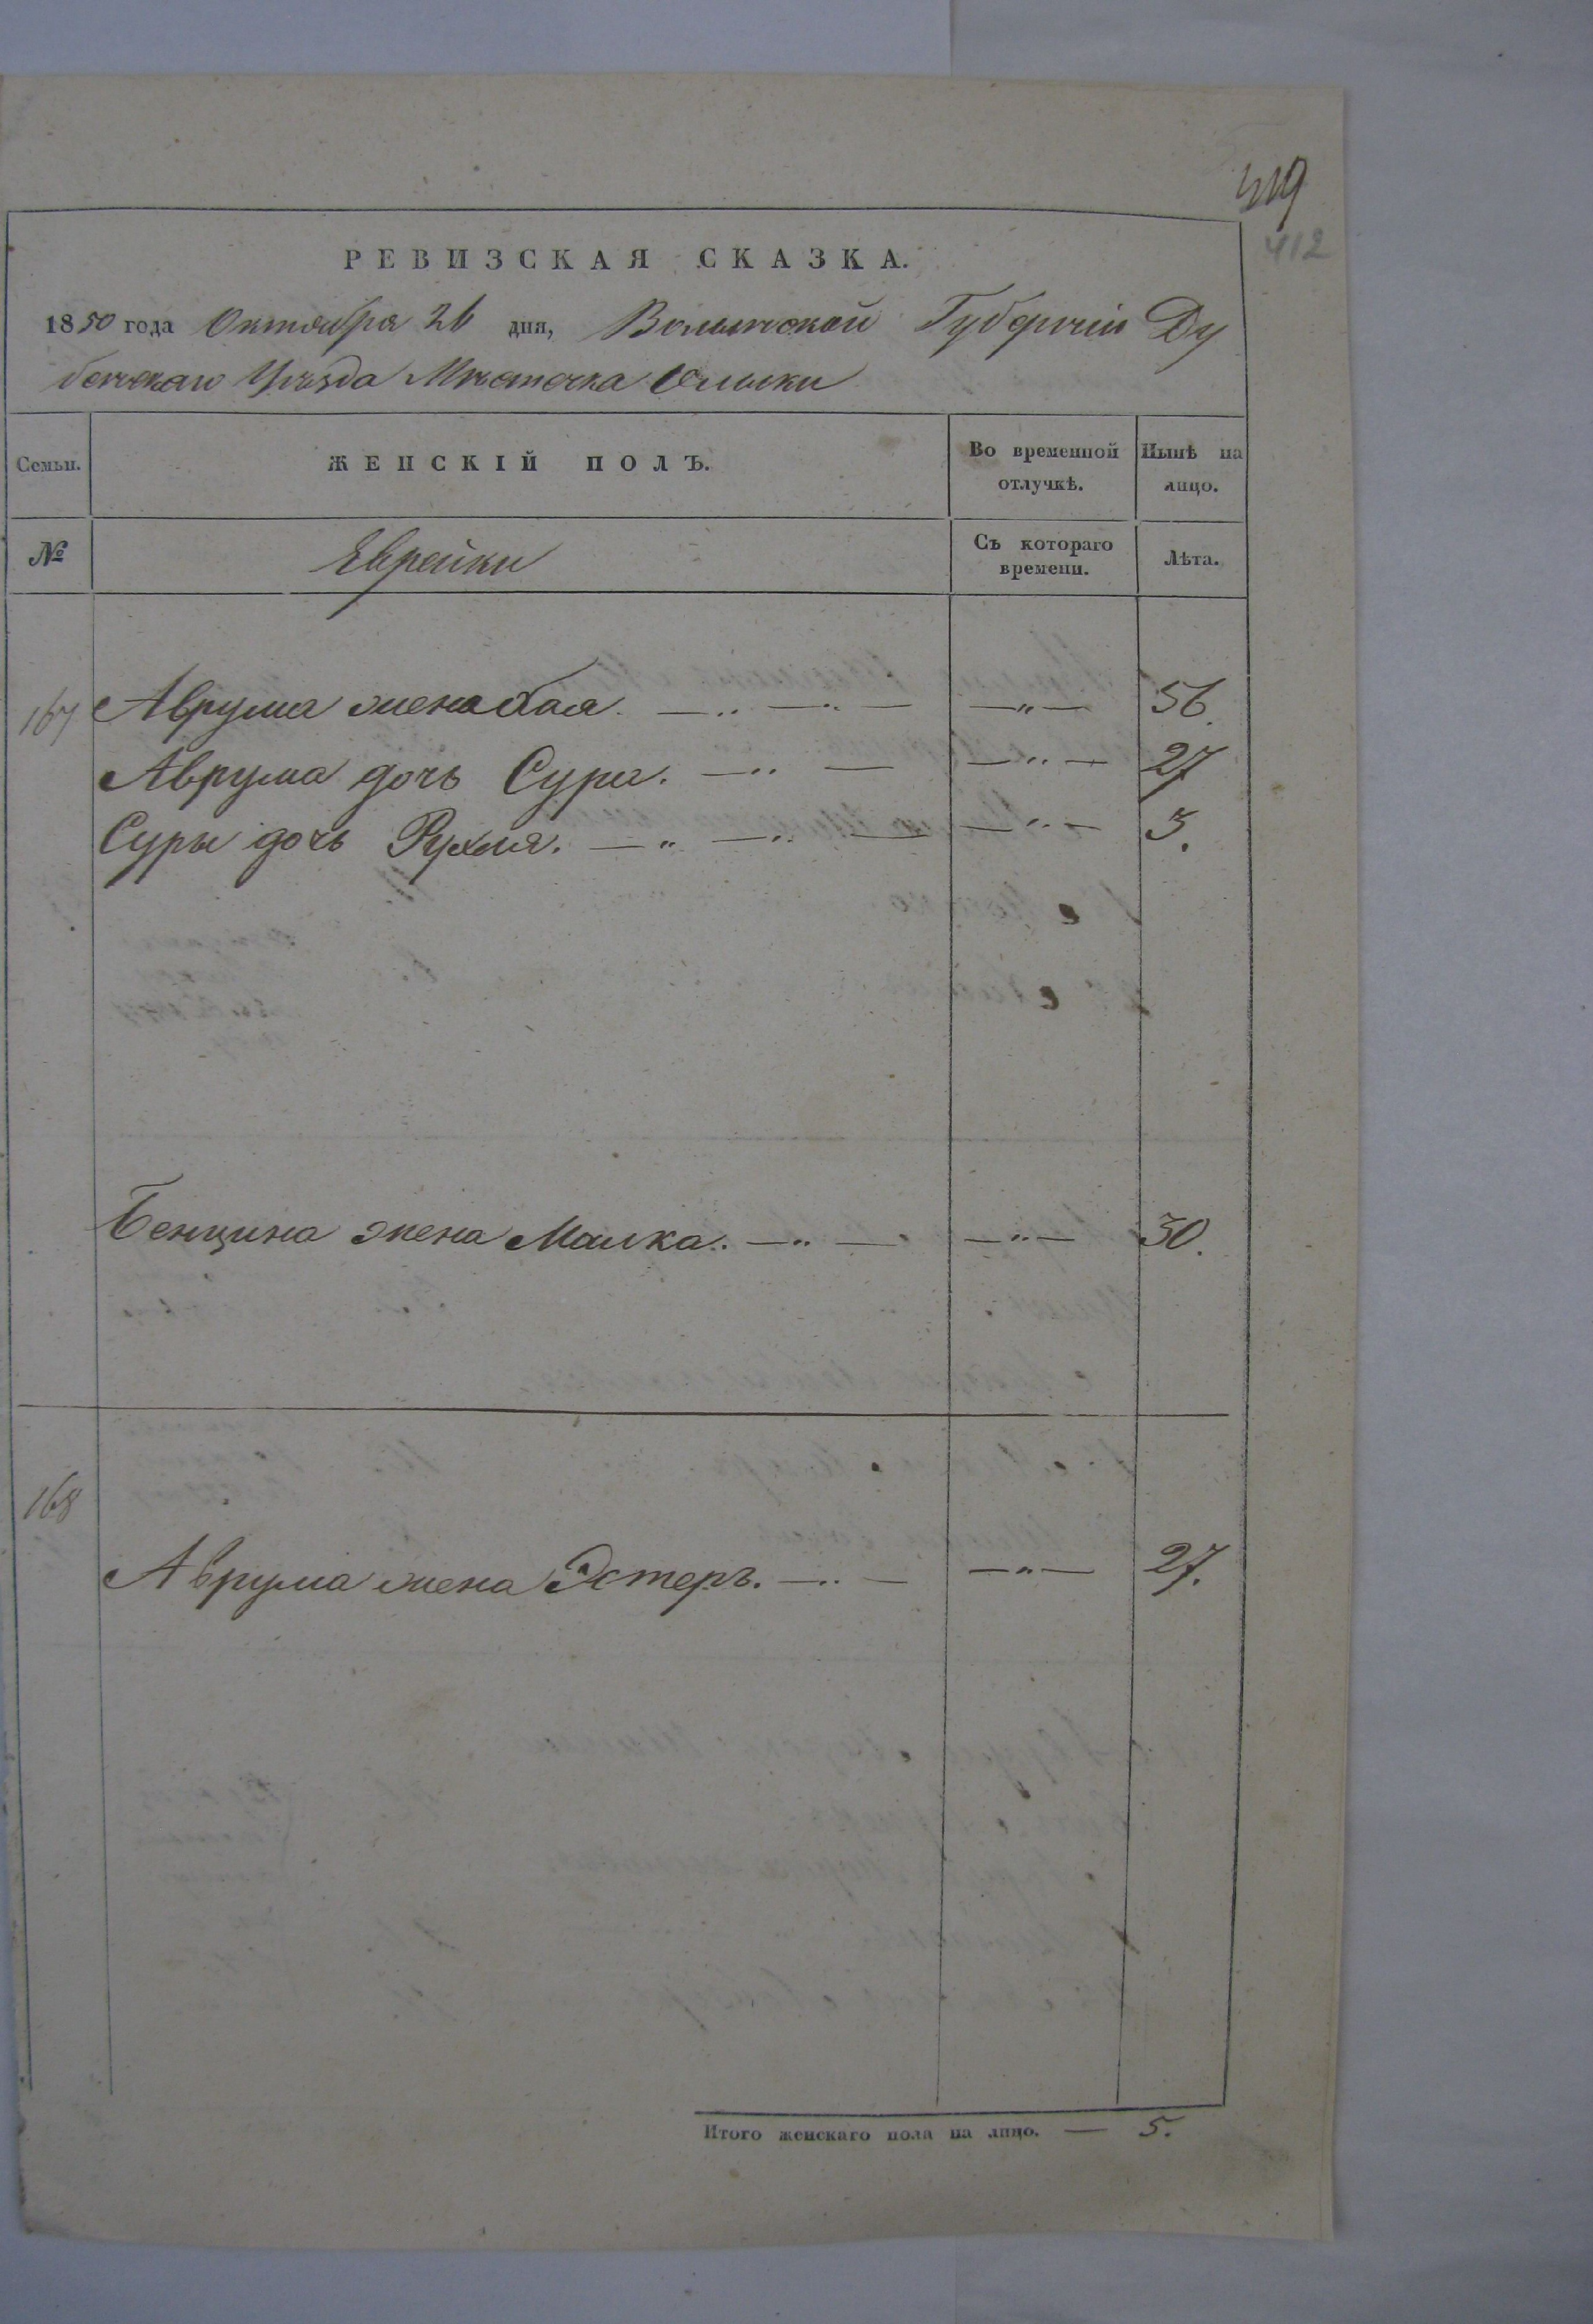 419
412
РЕВИЗСКАЯ СКАЗКА.
1850 года Октября 26 дня, Волынской Губерніи Ду
бенскаго Уѣзда Мѣстечка Олыки
Семьи. ЖЕНСКІЙ ПОЛЪ. Во временной отлучкѣ. Нынѣ на лицо.
№ Еврейки Съ котораго времени. Лѣта.
167 Аврума жена Хая. — „ — „ — — „ — 56.
Аврума дочь Сура. — „ — — „ — 27
Суры дочь Рухля. — „ — „ — — „ — 3.
Бенциона жена Малка. — „ — — „ — 30.
168
Аврума жена Эстеръ. — „ — — „ — 27.
Итого женскаго пола на лицо. — 5.